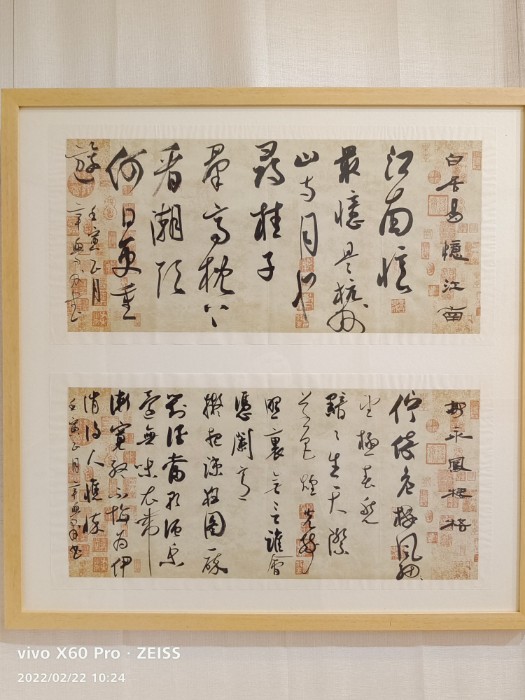 白居易憶江南
江南憶
最憶是杭州
山寺月中
尋桂子
郡亭枕上
看潮頭
何日更重
遊
壬寅正月
柳永鳳棲梧
佇倚危樓風細
望極春愁
黯々生天際
草色煙光殘
照裏無言誰會
憑闌意
擬把疏狂圖醉
對酒當歌強樂
還無味衣帶
漸寬終不悔為伊
消得人憔悴
壬寅正月
vivo X60 Pro · ZEISS
2022/02/22 10:24